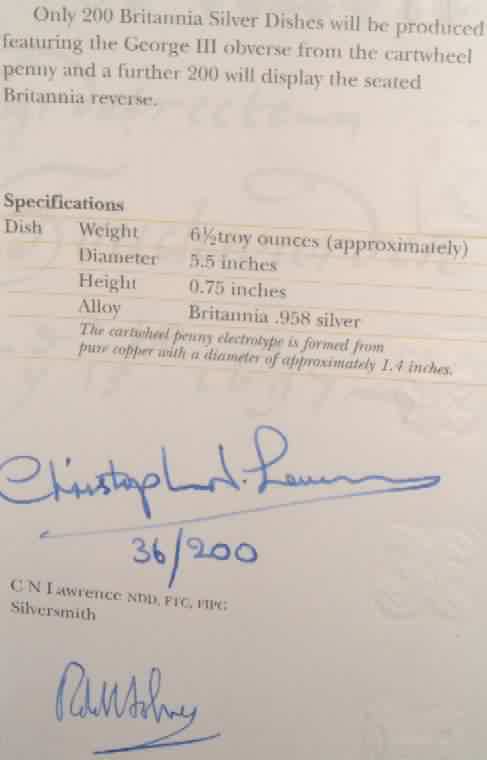 Only 200 Britannia Silver Dishes will be produced
featuring the George III obverse from the cartwheel
penny and a further 200 will display the seated
Britannia reverse.
Specifications
Dish Weight 6½troy ounces (approximately)
Diameter 5.5 inches
Height 0.75 inches
Alloy Britannia .958 silver
The cartwheel penny electrotype is formed from
pure copper with a diameter of approximately 1.4 inches.
Christopher N. Lawrence
36/200
C N Lawrence NDD, FTC, FIPG
Silversmith